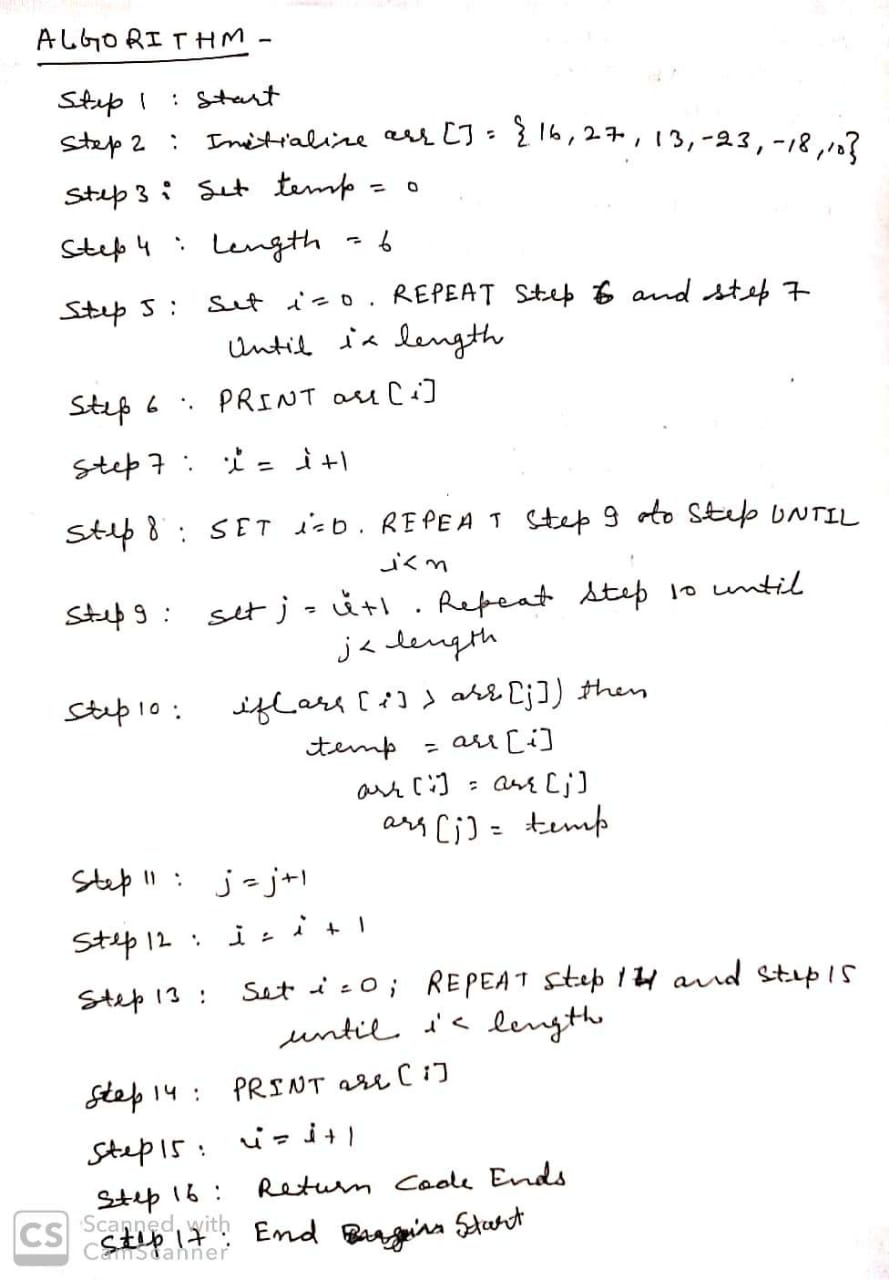 ALGORITHM -
Step 1 : Start
Step 2 : Initialize arr [] = { 16, 27, 13, -23, -18, 10}
Step 3 : Set temp = 0
Step 4 : Length = 6
Step 5 : Set i=0. REPEAT Step 6 and step 7
Until i< length
Step 6 : PRINT arr [i]
Step 7 : i = i+1
Step 8 : SET i=0. REPEAT Step 9 to Step UNTIL
i<n
Step 9 : set j = i+1 . Repeat Step 10 until
j< length
Step 10 : if(arr [i] > arr [j]) then
temp = arr [i]
arr [i] = arr [j]
arr [j] = temp
Step 11 : j = j+1
Step 12 : i = i + 1
Step 13 : Set i=0; REPEAT Step 14 and Step 15
until i< length
Step 14 : PRINT arr [i]
Step 15 : i = i+1
Step 16 : Return Code Ends
Step 17 : End Start
CS Scanned with
CamScanner